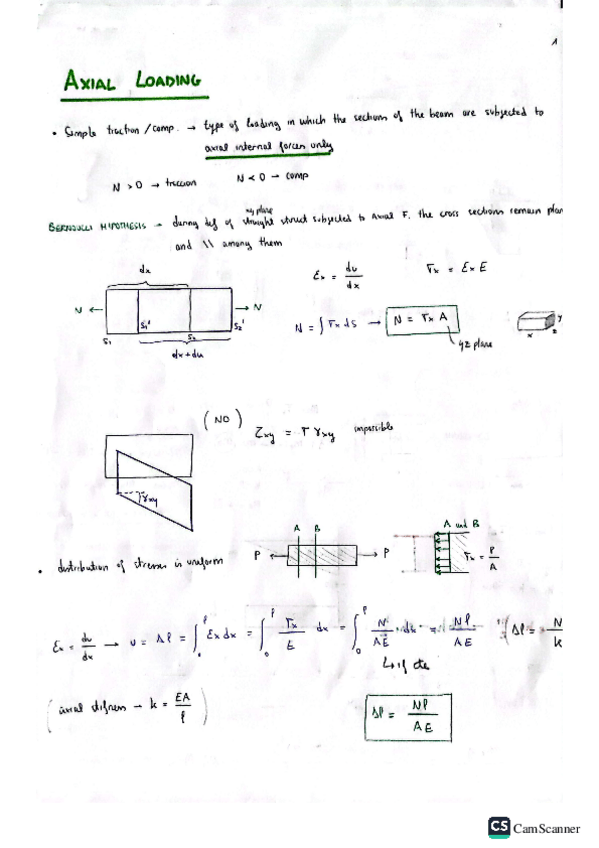 1
AXIAL LOADING
• Simple traction/comp. → type of loading in which the sections of the beam are subjected to
axial internal forces only
N > 0 → traction N < 0 → comp
xy plane
BERNOULLI HIPOTHESIS → during def of straight struct subjected to axial F, the cross sections remain plan
and \\ among them
dx
εx = du/dx σx = εx E
N ← → N
S1 S1' S2 S2'
N = ∫ σx ds → N = σx A
yz plane
x y z
dx + du
(NO) τxy = G γxy impossible
γxy
A B A and B
P ← → P σx = P/A
• distribution of stresses is uniform
εx = du/dx → u = Δl = ∫₀ˡ εx dx = ∫₀ˡ σx/E dx = ∫₀ˡ N/AE dx = Nl/AE (Δl = N/k
↳ if cte
(axial stifness → k = EA/l)
Δl = Nl/AE
CS CamScanner